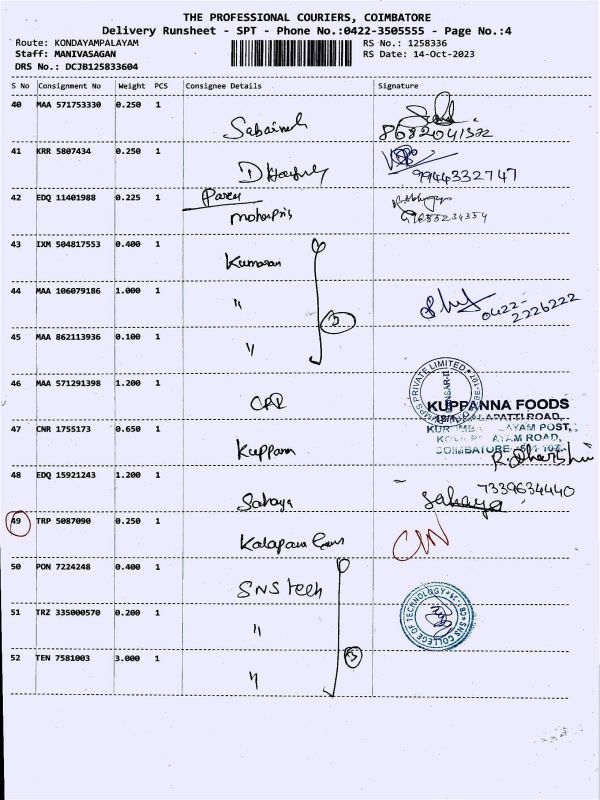 THE PROFESSIONAL COURIERS, COIMBATORE
Delivery Runsheet - SPT - Phone No.:0422-3505555 - Page No.:4
Route: KONDAYAMPALAYAM RS No.: 1258336
Staff: MANIVASAGAN RS Date: 14-Oct-2023
DRS No.: DCJB125833604
S No Consignment No Weight PCS Consignee Details Signature
40 MAA 571753330 0.250 1
41 KRR 5807434 0.250 1
9944332747
42 EDQ 11401988 0.225 1
43 IXM 504817553 0.400 1 Kumaran
44 MAA 106079186 1.000 1 "
0422-
2226222
45 MAA 862113936 0.100 1 "
46 MAA 571291398 1.200 1
PRIVATE LIMITED
KUPPANNA FOODS
47 CNR 1755173 0.650 1 Kuppann
COIMBATORE
48 EDQ 15921243 1.200 1 Sahaya
7339634440
sahaya
49 TRP 5087090 0.250 1
50 PON 7224248 0.400 1 SNS tech
51 TRZ 335000570 0.200 1 "
SNS COLLEGE OF TECHNOLOGY
52 TEN 7581003 3.000 1 "